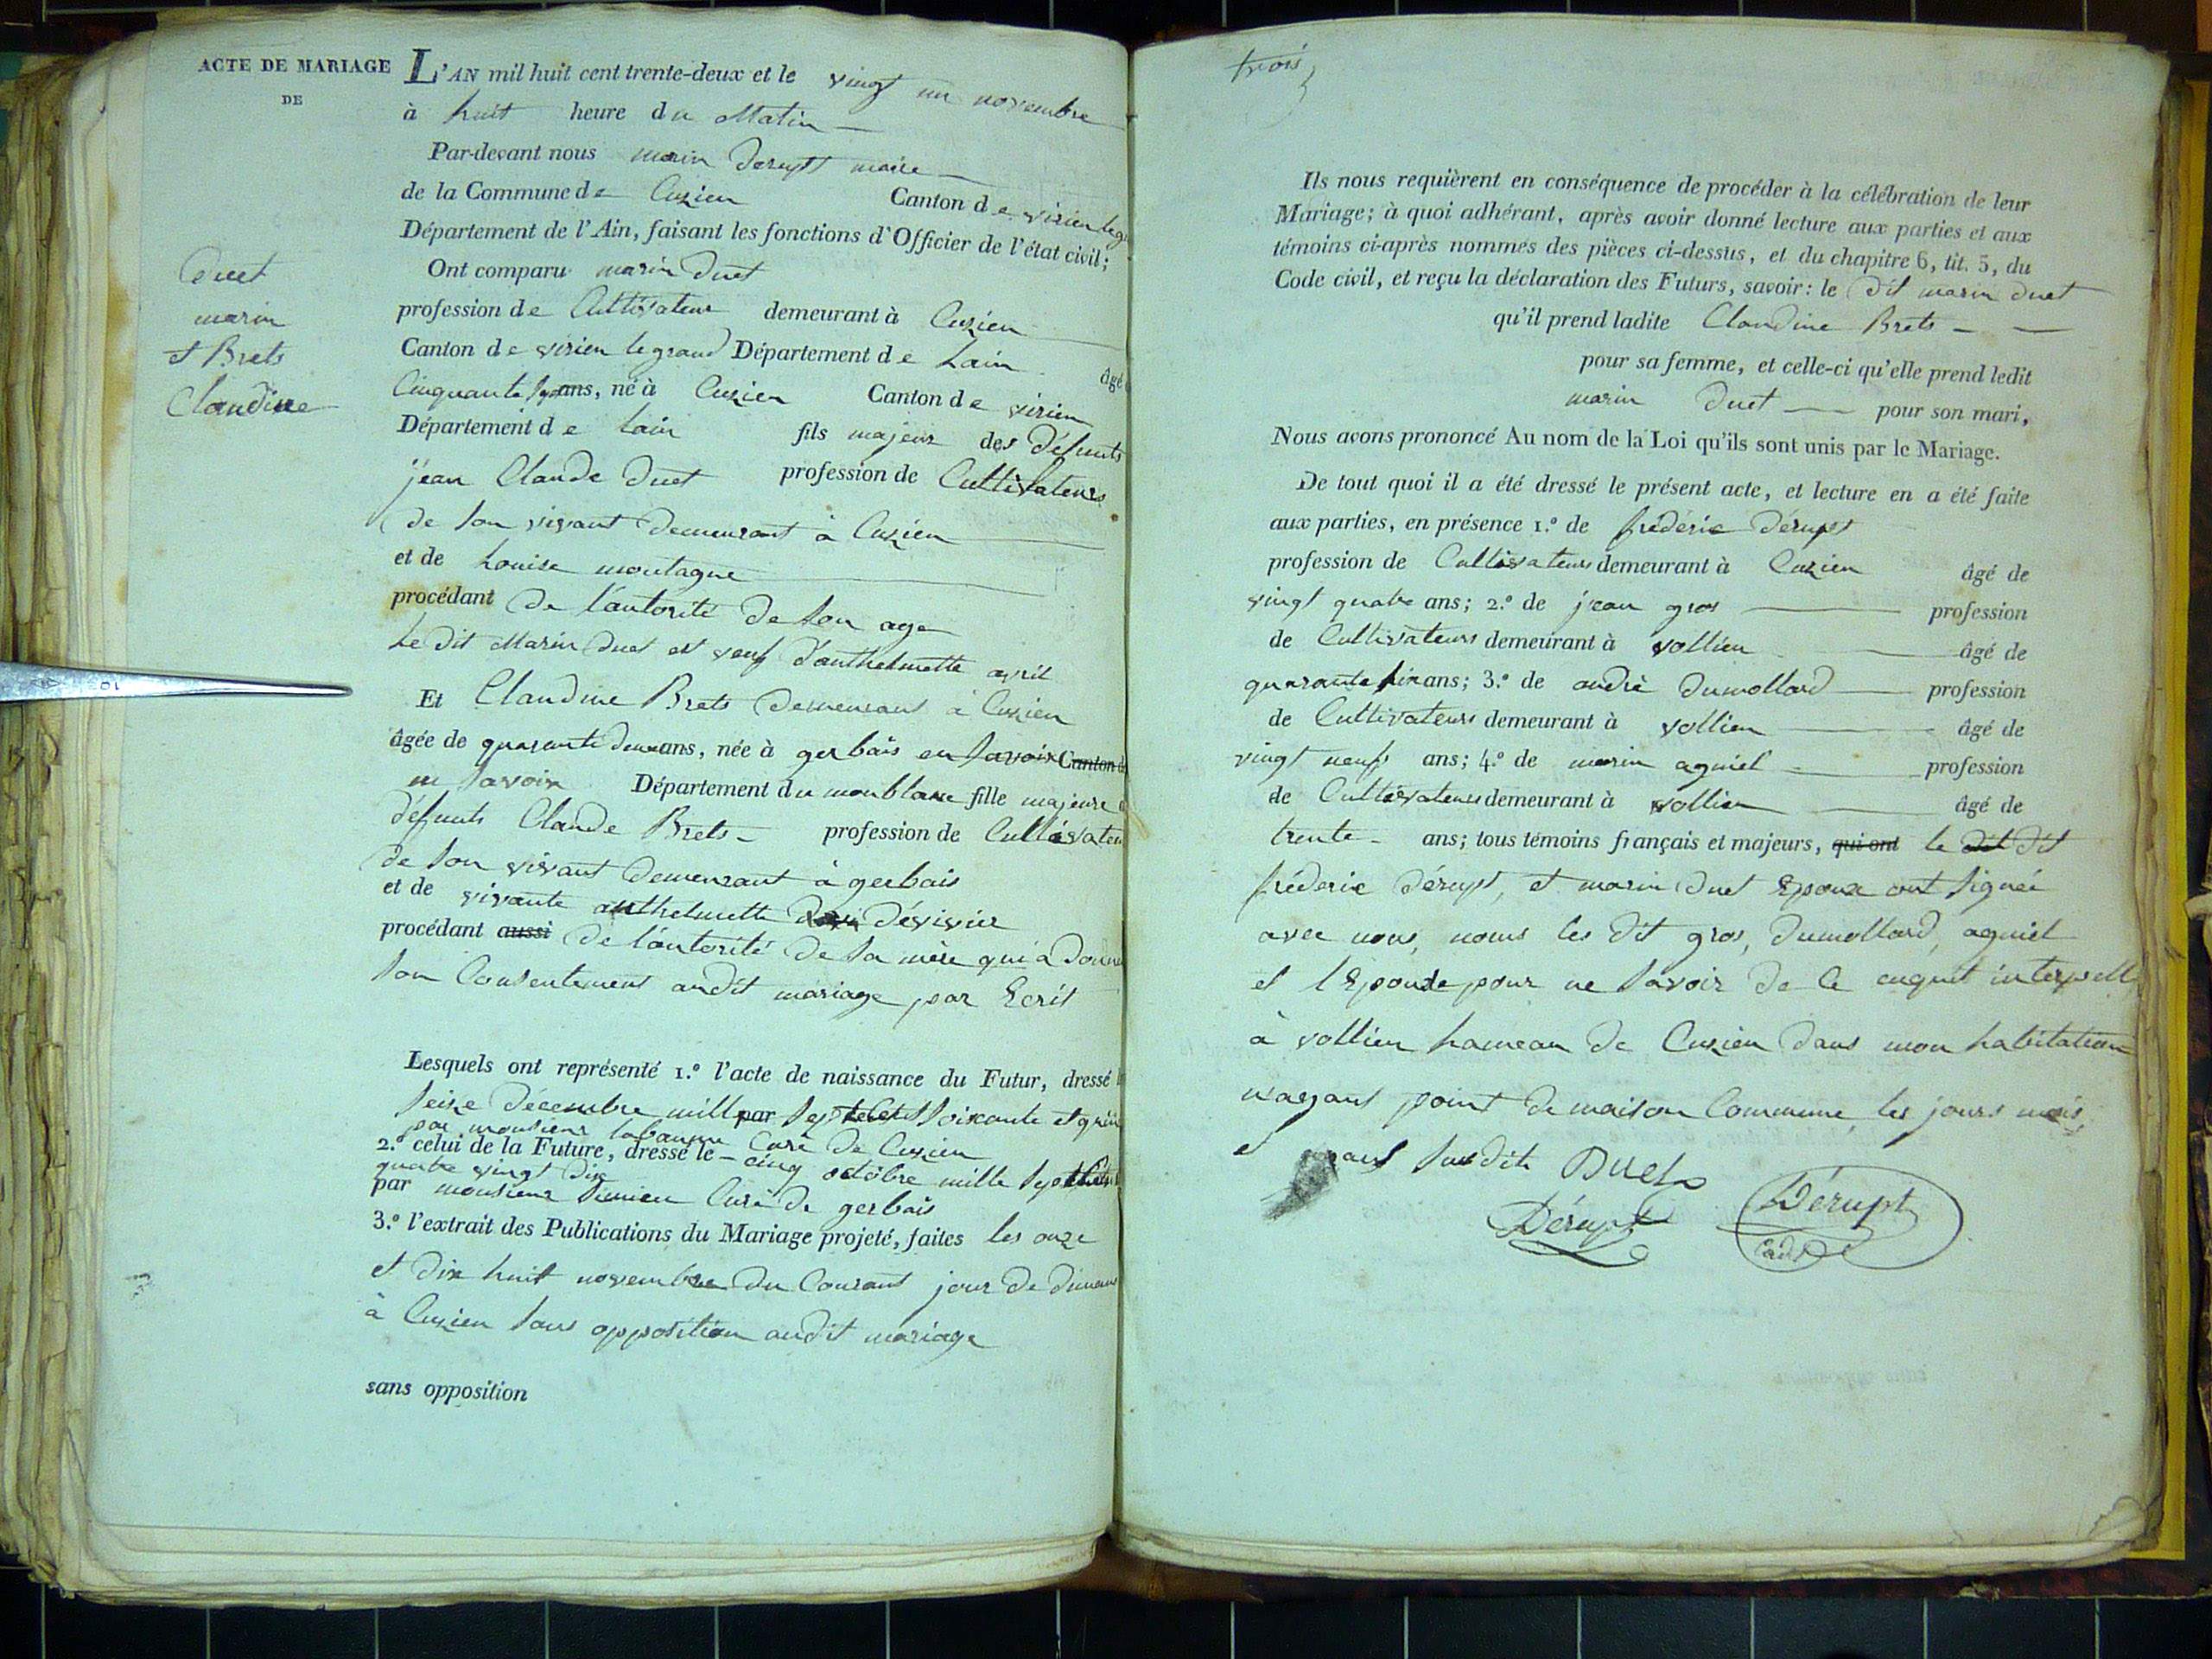 ACTE DE MARIAGE
DE
Duet
marin
et Brets
Claudine
L'AN mil huit cent trente-deux et le vingt un novembre
à huit heure du Matin
Par-devant nous marin Derupt maire
de la Commune de Cuzieu Canton de virieu leg
Département de l'Ain, faisant les fonctions d'Officier de l'état civil;
Ont comparu marin Duet
profession de Cultivateur demeurant à Cuzieu
Canton de virieu le grand Département de Lain âgé
Cinquante ans, né à Cuzieu Canton de virieu
Département de Lain fils majeur des défunts
jean Claude Duet profession de Cultivateurs
de son vivant demeurant à Cuzieu
et de Louise montagne
procédant de l'autorité de son age
Le dit Marin Duet est veuf d'anthelmette avril
Et Claudine Brets demeurant à Cuzieu
âgée de quarante deux ans, née à gerbais en Savoix Canton de
en Savoix Département du montblanc fille majeure
défunts Claude Brets profession de Cultivateu
de son vivant demeurant à gerbais
et de vivante anthelmette dévivier
procédant aussi de l'autorité de sa mère qui à donné
son Consentement audit mariage par Ecrit
Lesquels ont représenté 1.º l'acte de naissance du Futur, dressé
Seize décembre mille par Sept Cent Soixante et quin
par monsieur Curé de Cuzieu
2.º celui de la Future, dressé le cinq octobre mille Sept Cent
quatre vingt dix
par monsieur Curé de gerbais
3.º l'extrait des Publications du Mariage projeté, faites les onze
et dix huit novembre du Courant jour de dimanc
à Cuzieu sans opposition audit mariage
sans opposition
trois
Ils nous requièrent en conséquence de procéder à la célébration de leur
Mariage; à quoi adhérant, après avoir donné lecture aux parties et aux
témoins ci-après nommés des pièces ci-dessus, et du chapitre 6, tit. 5, du
Code civil, et reçu la déclaration des Futurs, savoir: le dit marin duet
qu'il prend ladite Claudine Brets
pour sa femme, et celle-ci qu'elle prend ledit
marin Duet pour son mari,
Nous avons prononcé Au nom de la Loi qu'ils sont unis par le Mariage.
De tout quoi il a été dressé le présent acte, et lecture en a été faite
aux parties, en présence 1.º de frédéric Dérupt
profession de Cultivateurs demeurant à Cuzieu âgé de
vingt quatre ans; 2.º de jean gros profession
de Cultivateurs demeurant à vollien âgé de
quarante six ans; 3.º de andré Dumollard profession
de Cultivateurs demeurant à vollien âgé de
vingt neuf ans; 4.º de marin agniel profession
de Cultivateurs demeurant à vollien âgé de
trente ans; tous témoins français et majeurs, qui ont le dit dit
fréderic Dérupt, et marin Duet Epoux ont Signéé
avec nous, nons les dit gros, Dumollard, agniel
et l'Epouse pour ne Savoir de Ce enquit interpellé
à vollien hameau de Cuzieu dans mon habitation
n'ayant point de maison Commune, les jours mois
et an susdits Duet
Dérupt Dérupt